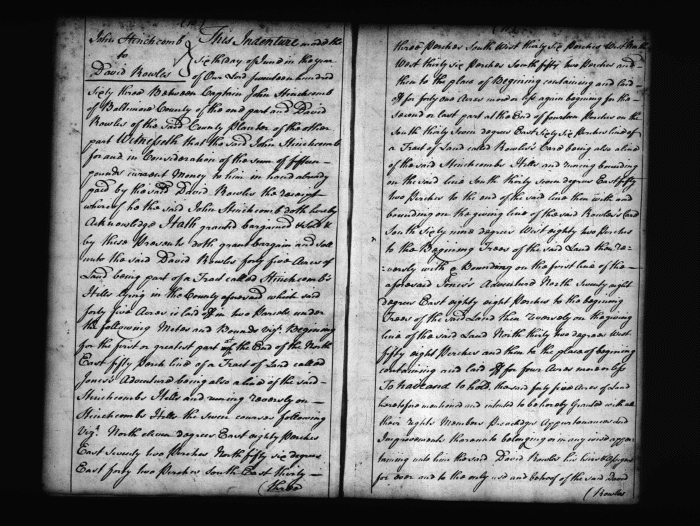 John Hinchcomb
to
David Rowles
This Indenture made the
Sixth day of June in the year
of Our Lord seventeen hundred
Sixty three Between Captain John Hinchcomb
of Baltimore County of the one part and David
Rowles of the said County Planter of the other
part Witnesseth that the said John Hinchcomb
for and in Consideration of the sum of fifteen
pounds current Money to him in hand already
paid by the said David Rowles the receipt
whereof he the said John Hinchcomb doth hereby
Acknowledge Hath granted bargained &
by these Presents doth grant bargain and
unto the said David Rowles forty five Acres of
Land being part of a Tract called Hinchcomb's
Hills lying in the County aforesaid which said
forty five Acres is laid off in two Parcels under
the following Metes and Bounds Vizt. Beginning
for the first or greatest part at the End of the North
East fifty perch line of a Tract of Land called
Jones's Adventure being also a line of the said
Hinchcombs Hills and runing reversly on
Hinchcombs Hills the Seven courses following
Vizt. North eleven degrees East eighty Perches
East seventy two Perches North fifty six degrees
East forty two Perches South East thirty
three
three Perches South West thirty six Perches West
West thirty six Perches South fifty two Perches and
then to the place of Begining containing and laid
off for forty one Acres more or less again begining for the
Second or Last part at the End of fourteen Perches on the
South thirty seven degrees East sixty six Perches line of
a Tract of Land called Rowles's Card being also a line
of the said Hinchcombs Hills and runing bounding
on the said line South thirty seven degrees East fifty
two Perches to the end of the said line then with and
bounding on the giveing line of the said Rowles's Card
South sixty nine degrees West eighty two perches
to the Begining Trees of the said Land then re-
versly with & Bounding on the first line of the
aforesaid Jones's Adventure North seventy eight
degrees East eighty eight Perches to the begining
Trees of the said Land then reversly on the giveing
line of the said Land North thirty two degrees West
fifty eight Perches and then to the place of begining
containing and laid off for four Acres more or less
To have and to hold the said forty five Acres of Land
heretofore mentioned and intended to be hereby Granted with all
their rights Members Priviledges Appurtenances and
Improvements thereunto belonging or in any wise appur
taining unto him the said David Rowles his heirs & Assigns
for ever and to the only use and behoof of the said David
Rowles